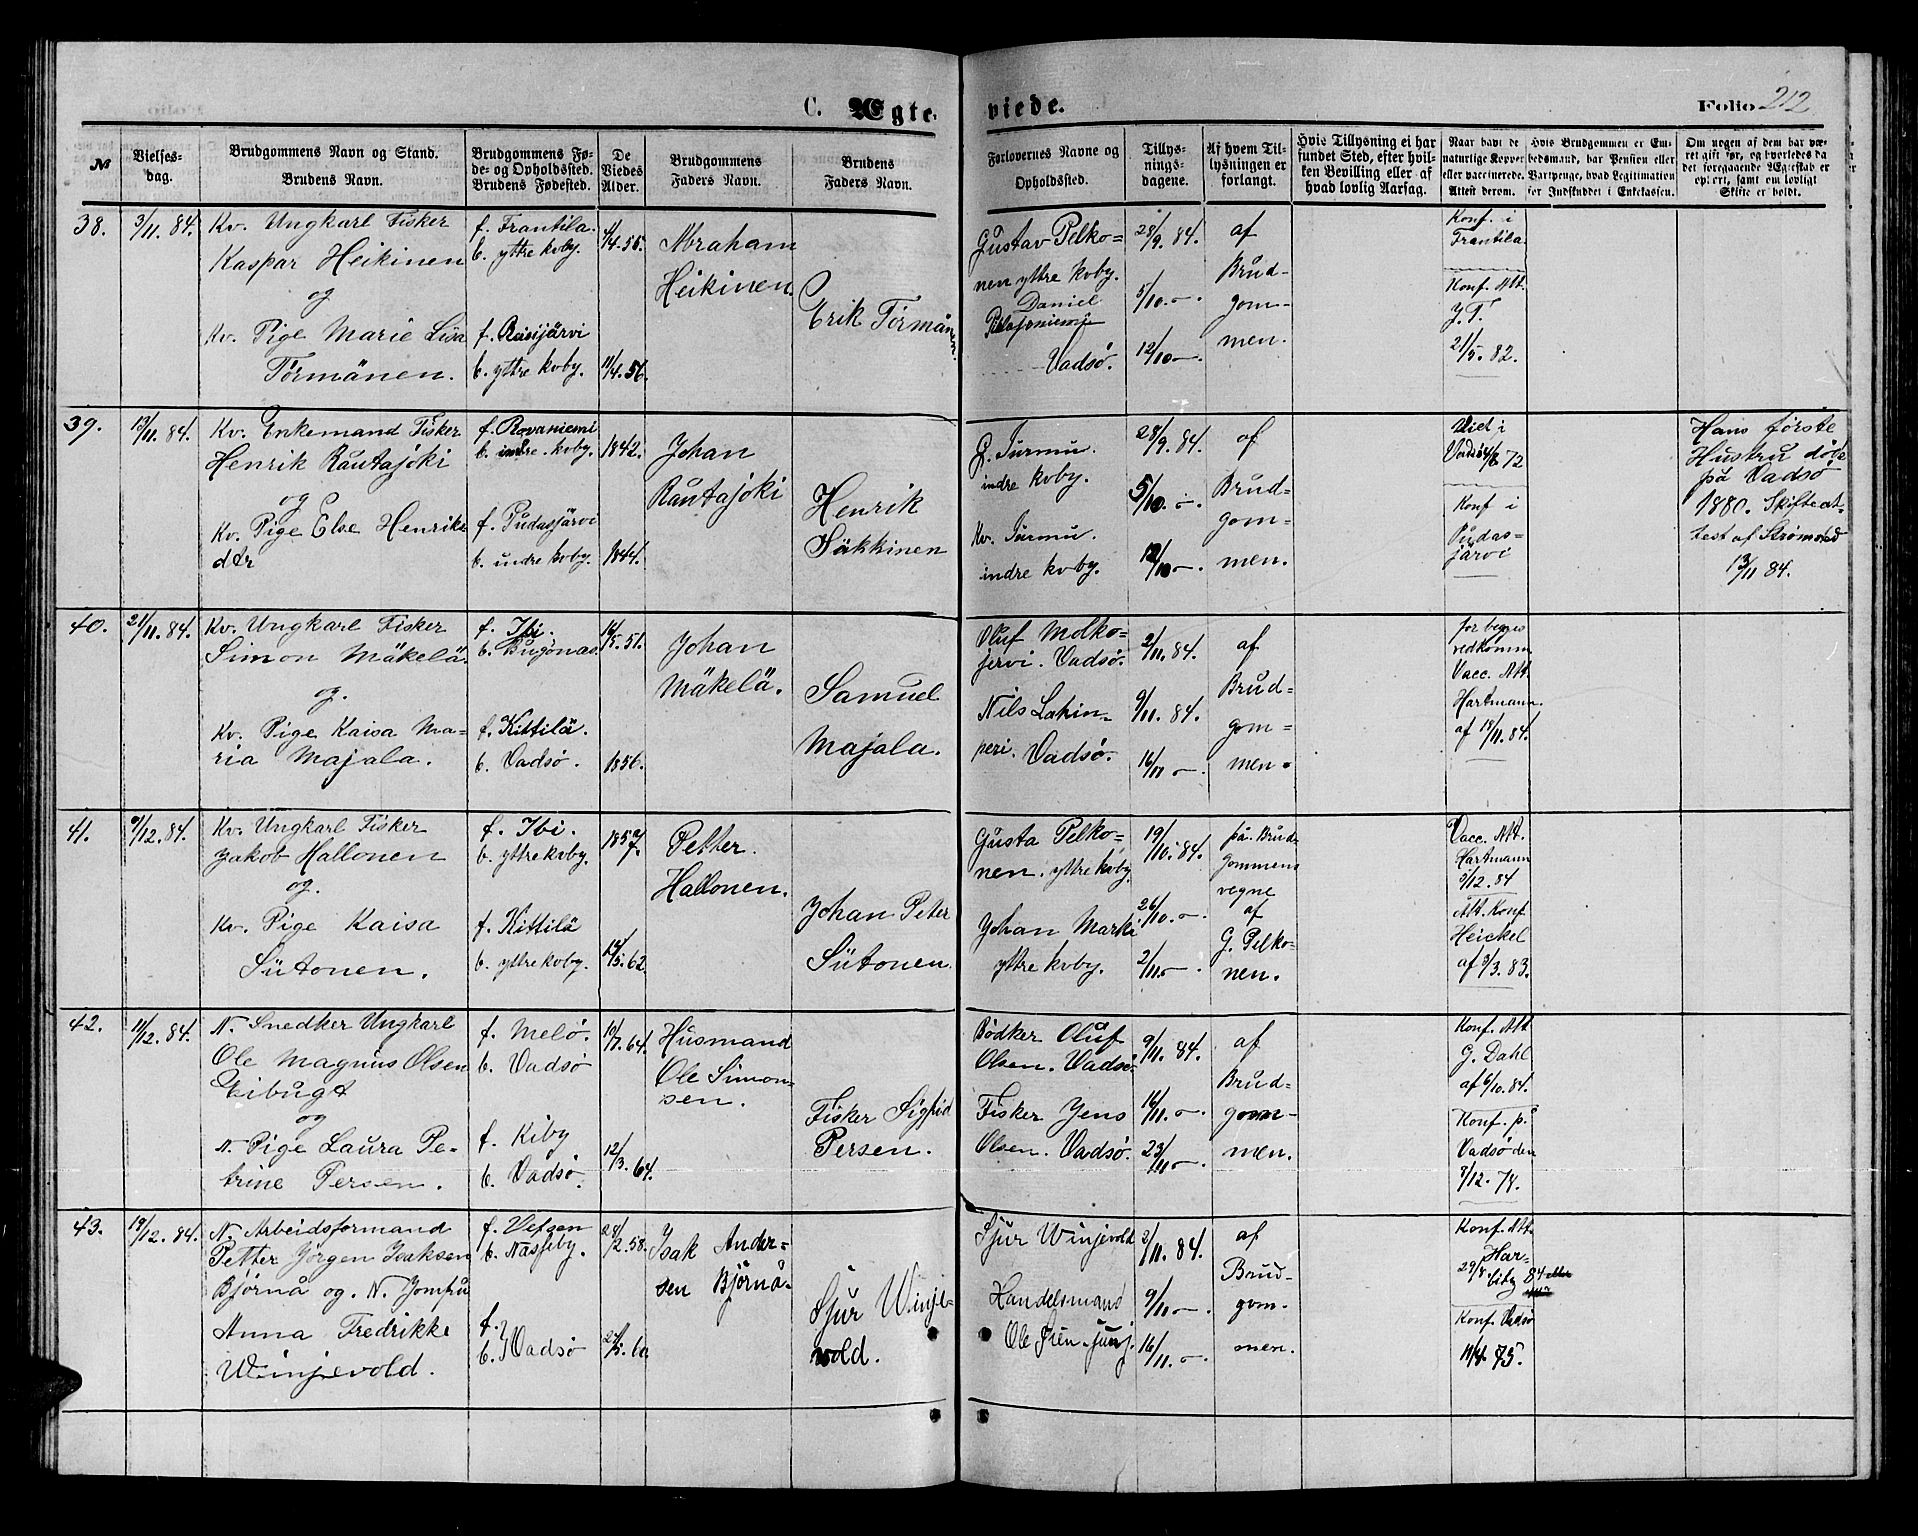 C. Ægte-
viede.
Folio 212
№
Vielses-
dag.
Brudgommens Navn og Stand.
Brudens Navn.
Brudgommens Fø-
de- og Opholdssted.
Brudens Fødested.
De
Viedes
Alder.
Brudgommens
Faders Navn.
Brudens
Faders Navn.
Forlovernes Navne og
Opholdssted.
Tillys-
nings-
dagene.
Af hvem Til-
lysningen er
forlangt.
Hvis Tillysning ei har
fundet Sted, efter hvil-
ken Bevilling eller af
hvad lovlig Aarsag.
Naar havt de
naturlige Kopper
eller vaccinerede.
Attest derom.
Hvis Brudgommen er Em-
bedsmand, har Pension eller
Vartpenge, hvad Legitimation
for Indskudet i Enkekassen.
Om nogen af dem har væ-
ret gift før, og hvorledes da
det foregaaende Ægteskab er
ophørt, samt om lovligt
Skifte er holdt.
38.
3/11. 84.
Kv. Ungkarl Fisker
Kaspar Heikinen
og
Kv. Pige Marie Lisa
Törmänen.
f. Frantila.
b. yttre kvby.
f. Reisijärvi
b. yttre kvby.
4/4. 56.
11/4. 56.
Abraham
Heikinen.
Erik Törmänen.
Gustav Pelko=
nen yttre kvby.
Daniel
Vadsø.
28/9. 84.
5/10. -
12/10 -
af
Brud=
gom=
men.
Konf. i
Frantila.
Konf. Att.
J. T.
21/5. 82.
39.
13/11. 84.
Kv. Enkemand Fisker
Henrik Rautajoki
og
Kv. Pige Else Henriks
dtr
f. Rovaniemi
b. indre kvby.
f. Pudasjärvi
b. indre kvby.
1842.
1844.
Johan
Rautajoki
Henrik
Säkkinen
G. Turmu.
indre kvby.
Kv. Turmu.
indre kvby.
28/9. 84.
5/10. -
12/10 -
af
Brud=
gom=
men.
Viet i
Vadsø 4/6 72
Konf i
Pudas=
järvi
Hans første
Hustru døde
på Vadsø
1880. Skifteat-
test af Strømsted
13/11 84.
40.
21/11. 84.
Kv. Ungkarl Fisker
Simon Mäkelä.
og.
Kv. Pige Kaisa Ma=
ria Majala.
f. Ibi.
b. Bugønæs.
f. Kittilä.
b. Vadsø.
14/5. 51.
1856.
Johan
Mäkelä.
Samuel
Majala.
Oluf Molko=
jervi. Vadsø.
Nils Lahin=
peri. Vadsø.
2/11. 84.
9/11. 84.
16/11 -
af
Brud=
gom=
men.
for beges
vedkomm.
Vacc. Att.
Hartmann.
af 18/11. 84.
41.
9/12. 84.
Kv. Ungkarl Fisker
Jakob Hallonen
og.
Kv. Pige Kaisa
Siitonen.
f. Ibi.
b. yttre kvby.
f. Kittilä
b. yttre kvby.
1857.
14/5. 62.
Petter.
Hallonen.
Johan Peter
Siitonen.
Gusta Pelko=
nen. yttre kvby.
Johan Marki
yttre kvby.
19/10. 84.
26/10. -
2/11 -
på Brud-
gommens
vegne
af
G. Pelko-
nen.
Vacc. Att.
Hartmann
5/12. 84
Att. Konf
Heickel
af 3/3. 83.
42.
11/12. 84.
N. Snedker Ungkarl
Ole Magnus Olsen
Eibugt
og
N. Pige Laura Pe-
trine Persen.
f. Melø.
b. Vadsø
f. Kiby
b. Vadsø.
10/7. 64.
12/3. 64.
Husmand
Ole Simon-
sen.
Fisker Sigfrid
Persen.
Bødker Oluf
Olsen. Vadsø.
Fisker Jens
Olsen. Vadsø.
9/11. 84.
16/11. -
23/11 -
af
Brud=
gom-
men.
Konf. Att
G. Dahl
af 6/10. 84.
Konf. p.
Vadsø den
7/12. 79.
43.
19/12. 84.
N. Arbeidsformand
Petter Jörgen Isaksen
Bjørnå og. N. Jomfru
Anna Fredrikke
Winjevold.
f. Vefsen
b. Næsseby.
f.
b. Vadsø
28/2. 58.
24/5. 60.
Isak Ander=
sen Bjørnå.
Sjur Winje=
vold.
Sjur Winjevold
Handelsmand
Ole
2/11. 84.
9/11 -
16/11. -
af
Brud-
gom-
men.
Konf. Att.
Har-
bitz 84
29/8.
Konf. Vadsø
11/4. 75.